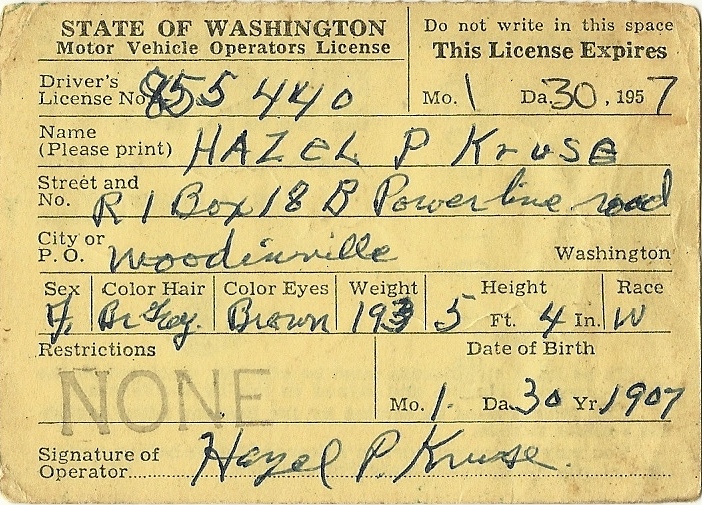 STATE OF WASHINGTON
Motor Vehicle Operators License
Do not write in this space
This License Expires
Driver's
License No. 855 440
Mo. 1 Da. 30, 1957
Name
(Please print) HAZEL P KrUSE
Street and
No. R 1 Box 18 B Powerline road
City or
P. O. Woodinville Washington
Sex Color Hair Color Eyes Weight Height Race
F. Br Gray. Brown 193 5 Ft. 4 In. W
Restrictions Date of Birth
NONE
Mo. 1. Da. 30 Yr. 1907
Signature of
Operator Hazel P. Kruse.